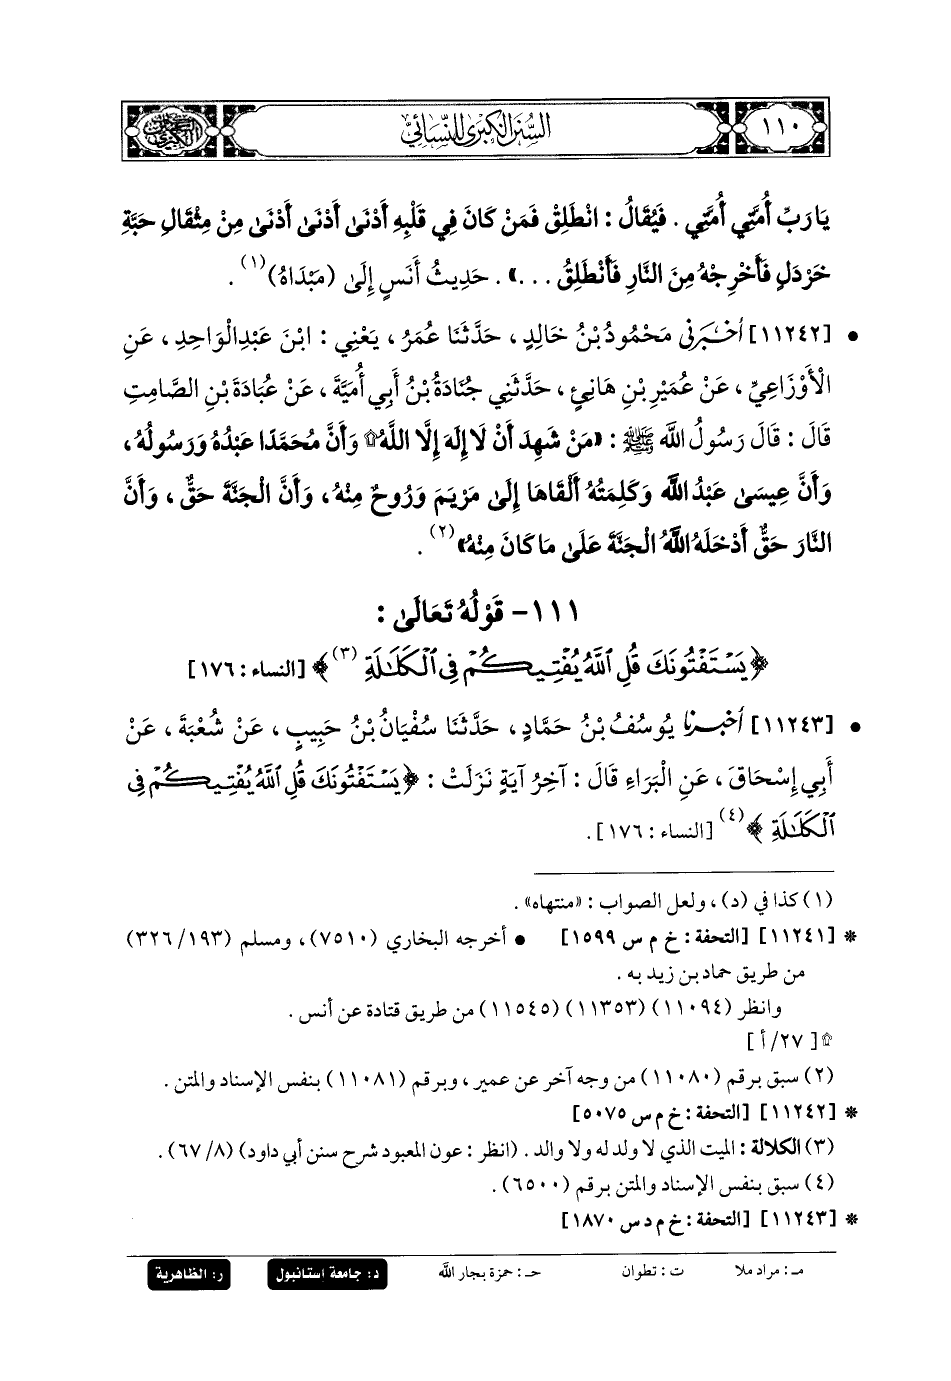 ١١٠
السنن الكبرى للنسائي
يَا رَبِّ أُمَّتِي أُمَّتِي . فَيُقَالُ : انْطَلِقْ فَمَنْ كَانَ فِي قَلْبِهِ أَدْنَىٰ أَدْنَىٰ أَدْنَىٰ مِنْ مِثْقَالِ حَبَّةِ
خَرْدَلٍ فَأَخْرِجْهُ مِنَ النَّارِ فَأَنْطَلِقُ . . .» . حَدِيثُ أَنَسٍ إِلَىٰ (مَبْدَاهُ)(١) .
• [١١٢٤٢] أَخْبَرَنِي مَحْمُودُ بْنُ خَالِدٍ ، حَدَّثَنَا عُمَرُ ، يَعْنِي : ابْنَ عَبْدِالْوَاحِدِ ، عَنِ
الْأَوْزَاعِيِّ ، عَنْ عُمَيْرِ بْنِ هَانِئٍ ، حَدَّثَنِي جُنَادَةُ بْنُ أَبِي أُمَيَّةَ ، عَنْ عُبَادَةَ بْنِ الصَّامِتِ
قَالَ : قَالَ رَسُولُ اللَّهِ ﷺ : «مَنْ شَهِدَ أَنْ لَا إِلَهَ إِلَّا اللَّهُ۩ وَأَنَّ مُحَمَّدًا عَبْدُهُ وَرَسُولُهُ ،
وَأَنَّ عِيسَىٰ عَبْدُ اللَّهِ وَكَلِمَتُهُ أَلْقَاهَا إِلَىٰ مَرْيَمَ وَرُوحٌ مِنْهُ ، وَأَنَّ الْجَنَّةَ حَقٌّ ، وَأَنَّ
النَّارَ حَقٌّ أَدْخَلَهُ اللَّهُ الْجَنَّةَ عَلَىٰ مَا كَانَ مِنْهُ»(٢) .
١١١- قَوْلُهُ تَعَالَىٰ :
﴿يَسْتَفْتُونَكَ قُلِ ٱللَّهُ يُفْتِيكُمْ فِى ٱلْكَلَـٰلَةِ (٣)﴾ [النساء : ١٧٦]
• [١١٢٤٣] أَخْبَرَنَا يُوسُفُ بْنُ حَمَّادٍ ، حَدَّثَنَا سُفْيَانُ بْنُ حَبِيبٍ ، عَنْ شُعْبَةَ ، عَنْ
أَبِي إِسْحَاقَ ، عَنِ الْبَرَاءِ قَالَ : آخِرُ آيَةٍ نَزَلَتْ : ﴿يَسْتَفْتُونَكَ قُلِ ٱللَّهُ يُفْتِيكُمْ فِى
ٱلْكَلَـٰلَةِ﴾(٤) [النساء : ١٧٦] .
(١) كذا في (د) ، ولعل الصواب : «منتهاه» .
* [١١٢٤١] [التحفة : خ م س ١٥٩٩] • أخرجه البخاري (٧٥١٠) ، ومسلم (٣٢٦/١٩٣)
من طريق حماد بن زيد به .
وانظر (١١٠٩٤) (١١٣٥٣) (١١٥٤٥) من طريق قتادة عن أنس .
۩ [٢٧/ أ]
(٢) سبق برقم (١١٠٨٠) من وجه آخر عن عمير ، وبرقم (١١٠٨١) بنفس الإسناد والمتن .
* [١١٢٤٢] [التحفة : خ م س ٥٠٧٥]
(٣) الكلالة : الميت الذي لا ولد له ولا والد . (انظر : عون المعبود شرح سنن أبي داود) (٨/ ٦٧) .
(٤) سبق بنفس الإسناد والمتن برقم (٦٥٠٠) .
* [١١٢٤٣] [التحفة : خ م د س ١٨٧٠]
مـ : مراد ملا ت : تطوان حـ : حمزة بجار الله د : جامعة إستانبول ر : الظاهرية